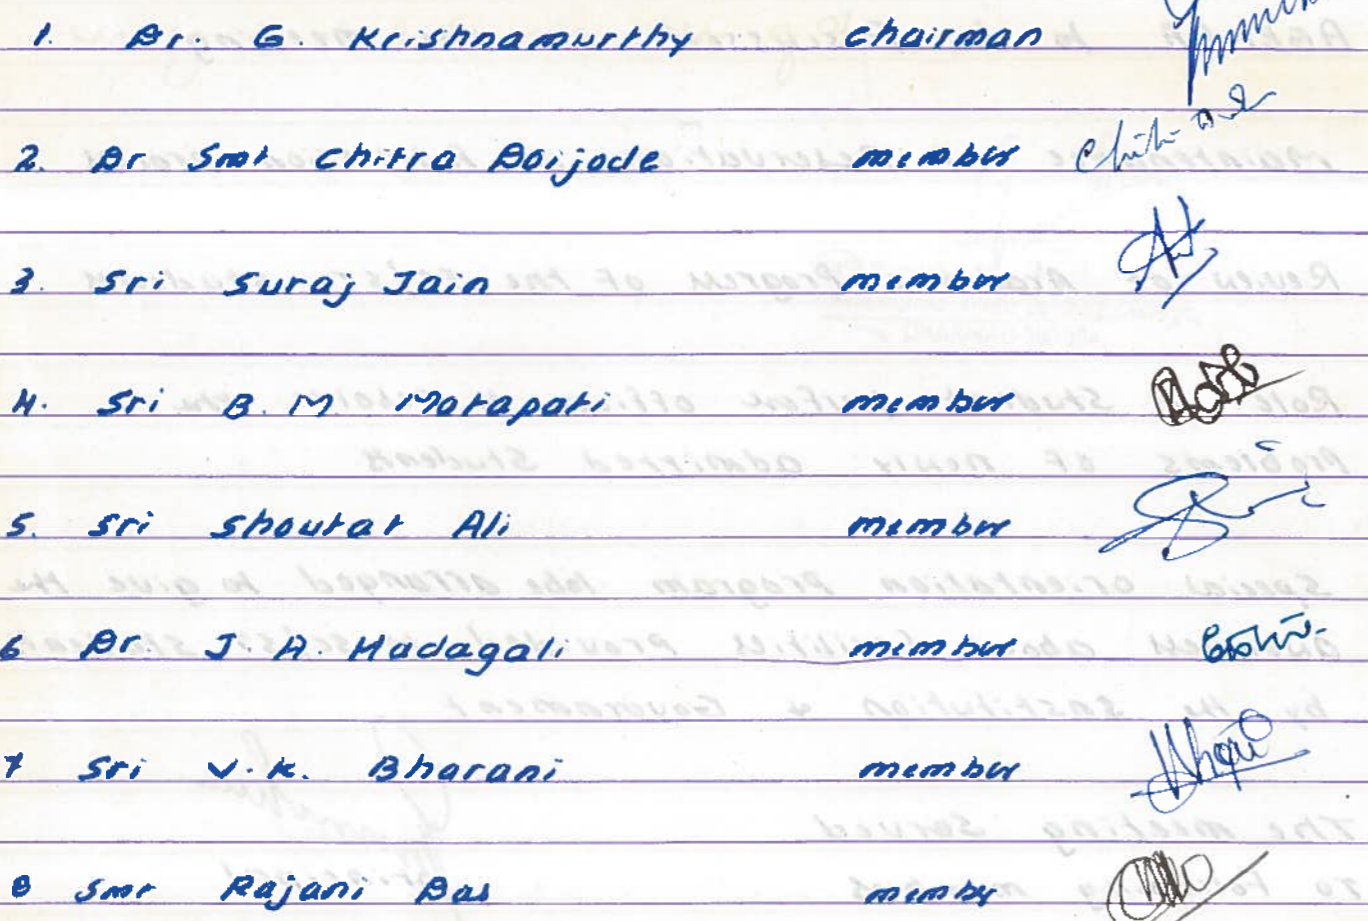 1. Dr. G. Krishnamurthy chairman
2. Dr Smt Chitra Doijode member
3. Sri Suraj Jain member
4. Sri B. M Matapati member
5. Sri Shoukat Ali member
6 Dr. J. A. Hadagali member
7 Sri V. K. Bharani member
8 Smt Rajani Das member